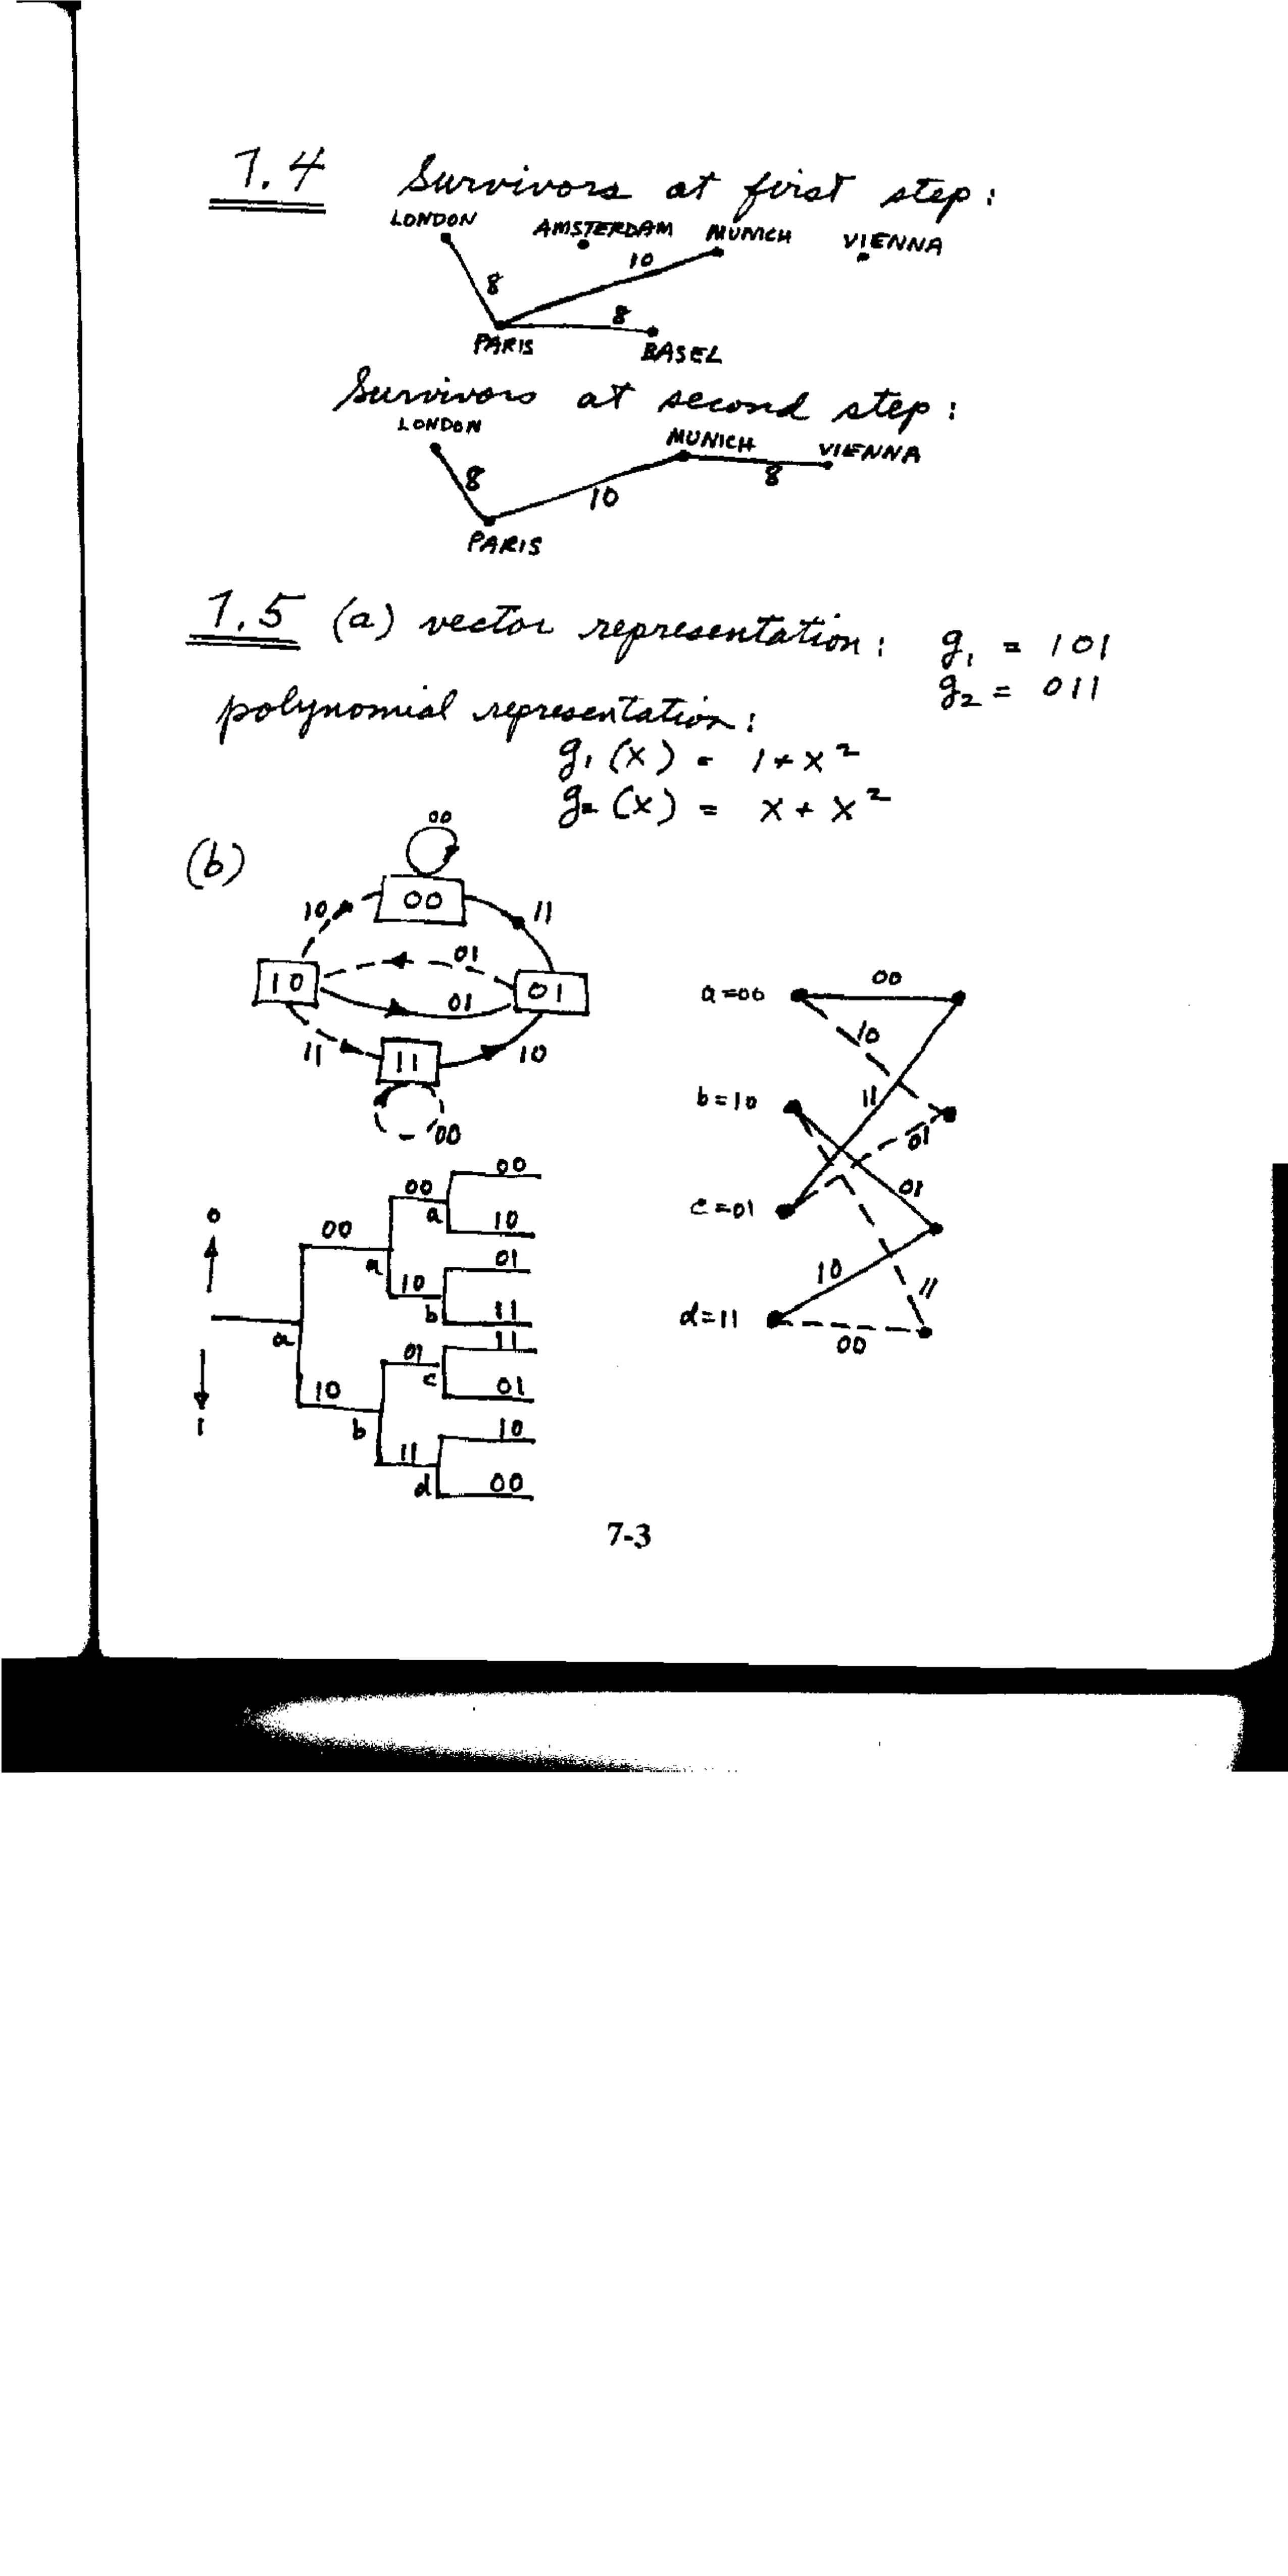 7.4 Survivors at first step:
LONDON AMSTERDAM MUNICH VIENNA
10
8
8
PARIS BASEL
Survivors at second step:
LONDON MUNICH VIENNA
8 10 8
PARIS
7.5 (a) vector representation: g₁ = 101
g₂ = 011
polynomial representation:
g₁(x) = 1 + x²
g₂(x) = x + x²
(b)
00
10 00 11
01
10 01
01
11 11 10
00
a=00 00
10
b=10 11
01
c=01 01
10 11
d=11
00
0
1
00
00 a 10
00
a 10 01
b 11
a
11
01 c 01
10
b 10
11 d 00
7-3